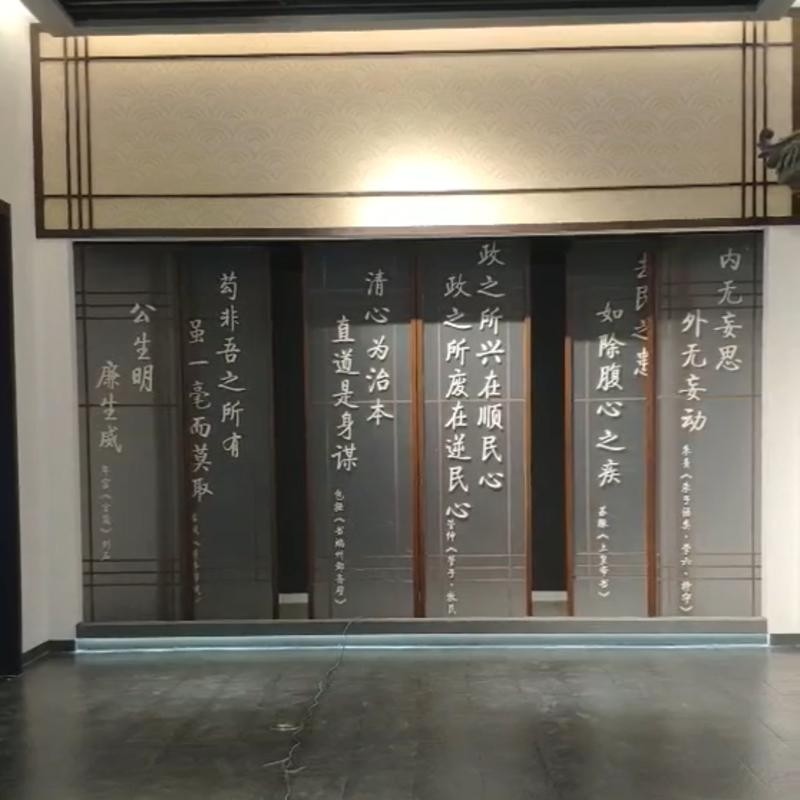 内无妄思
外无妄动
朱熹《朱子语类·学六·持守》
去民之患
如除腹心之疾
苏辙《上皇帝书》
政之所兴在顺民心
政之所废在逆民心
管仲《管子·牧民
清心为治本
直道是身谋
包拯《书端州郡斋壁》
苟非吾之所有
虽一毫而莫取
公生明
廉生威
年富《官箴》刻石